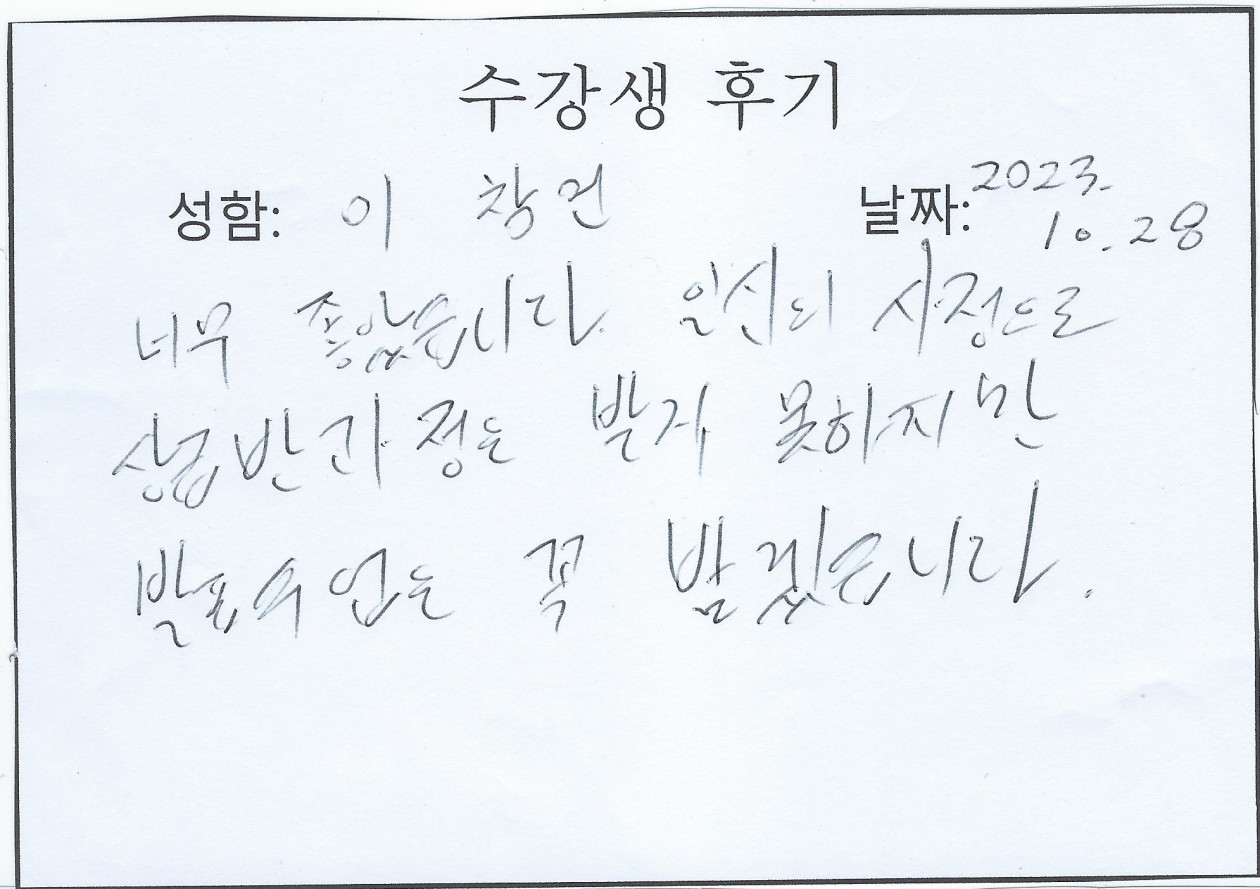 수강생 후기
성함: 이 창건
날짜: 2023.
10.28
너무 좋았습니다. 일신의 사정으로
상급반과정은 받지 못하지만
발표수업은 꼭 받겠습니다.